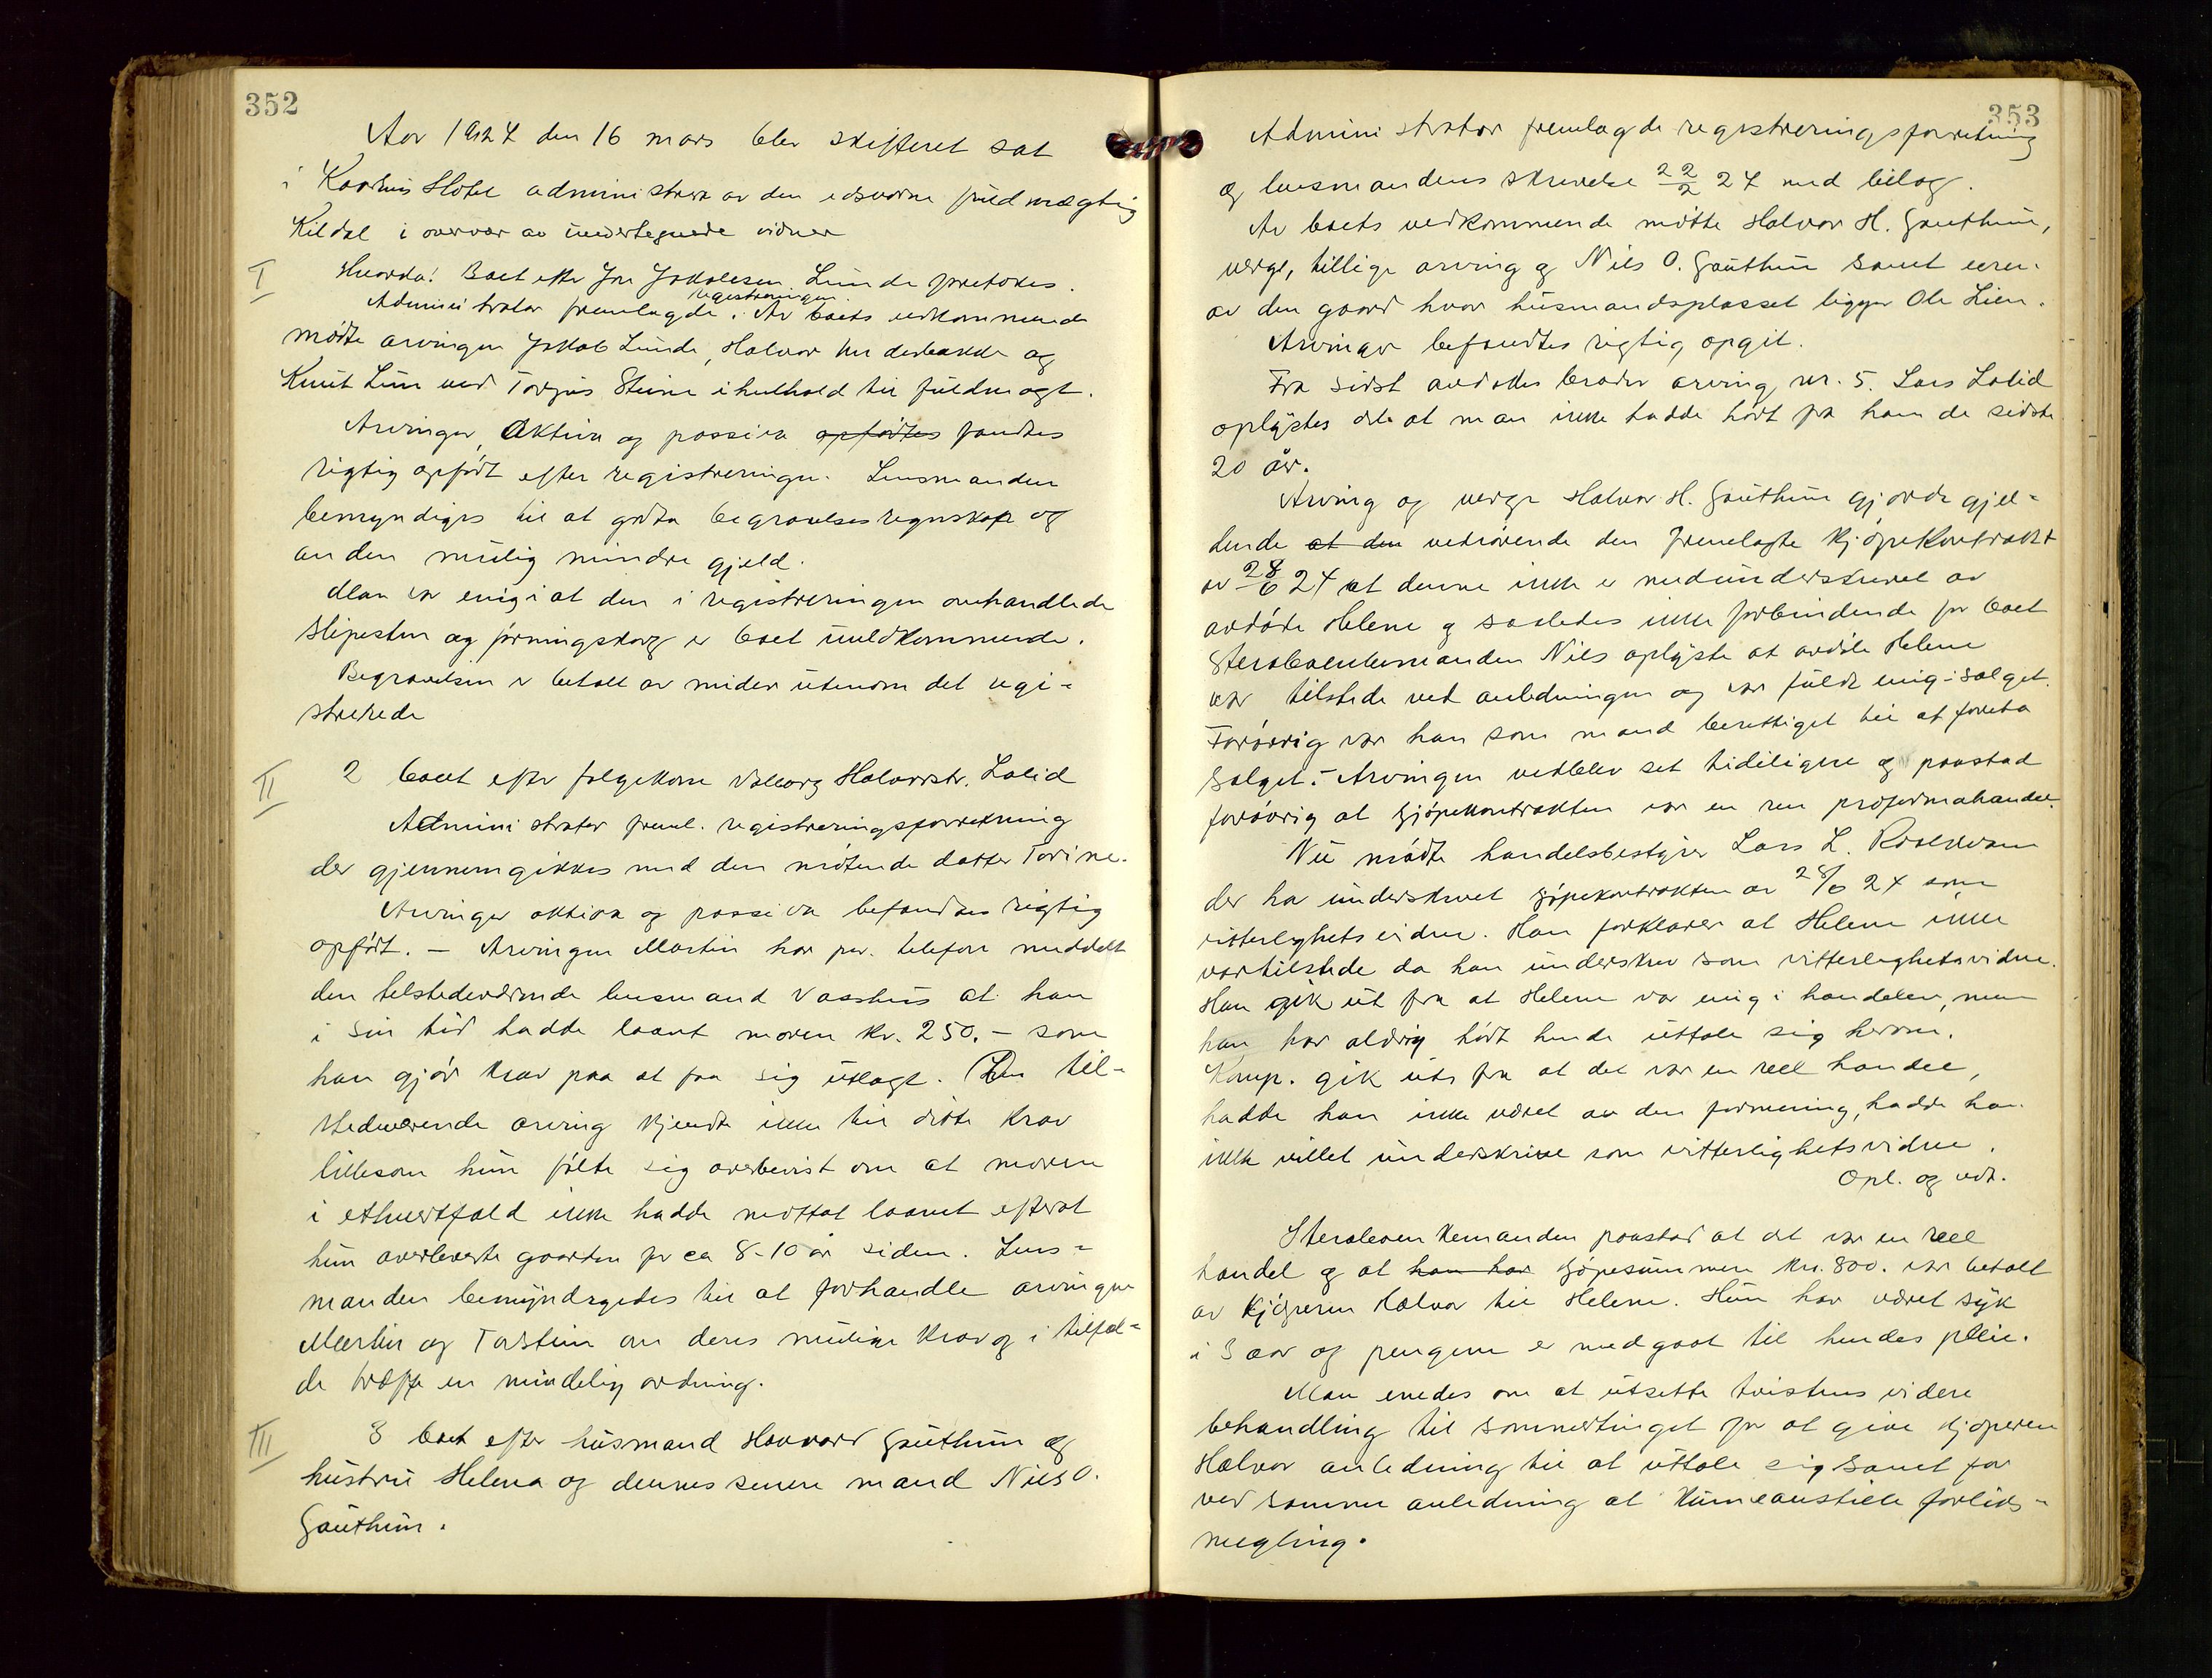 352
Aar 1924 den 16 mars blev skifteret sat
i Kaarhus Hotel administrert av den edsvorne fuldmægtig
Kildal i overvær av undertegnede vidner
I Hvorda: Boet efter Jon Jakobsen Lunde foretokes.
registreringen.
Administrator fremlagde. Av boets vedkommende
møtte arvingen Jakob Lunde, Halvor og
Knut Lunde ved Torgus Steine i henhold til fuldmagt.
Arvinger, Aktiva og passiva opførtes fandtes
rigtig opført efter registreringen. Lensmanden
bemyndiges til at godta begravelsesregnskap og
anden mulig mindre gjeld.
Man var enig i at den i registreringen omhandlede
slipesten og førningskorg er boet uvedkommende.
Begravelsen er betalt av midler utenom det regi-
strerede
II 2 boet efter følgekone Valborg Halvorsdtr. Lolid
Administrator freml. registreringsforretning
der gjennemgikkes med den møtende datter Torine.
Arvinger aktiva og passiva befandtes rigtig
opført. — Arvingen Martin har pr. telefon meddelt
den tilstedeværende lensmand Vasshus at han
i sin tid hadde laant moren kr. 250.- som
han gjør krav paa at faa sig utlagt. Den til-
stedeværende arving kjendte ikke til dette krav
likesom hun følte sig overbevist om at moren
i ethvertfald ikke hadde mottat laanet efterat
hun overleverte gaarden for ca 8-10 år siden. Lens-
manden bemyndigedes til at forhandle arvingene
Martin og Torstein om deres mulige krav og i tilfæl-
de træffe en mindelig ordning.
III 3 boet efter husmand Haavard Gauthun og
hustru Helena og dennes senere mand Nils O.
Gauthun.
353
Administrator fremlagde registreringsforretning
og lensmandens skrivelse 22/2 24 med bilag.
Av boets vedkommende møtte Halvor H. Gauthun,
verge, tillige arving og Nils O. Gauthun samt eieren
av den gaard hvor husmandsplasset ligger Ole Lien.
Arvinger befandtes rigtig opgit.
Fra sidst avdødes broder arving nr. 5. Lars Lolid
oplystes det at man ikke hadde hørt fra ham de sidste
20 år.
Arving og verge Halvor H. Gauthun gjorde gjel-
dende at den vedrørende den fremlagte kjøpekontrakt
av 28/6 24 at denne ikke er medunderskrevet av
avdøde Helene og saaledes ikke forbindende for boet
Sterboenkemanden Nils oplyste at avdøde Helene
var tilstede ved anledningen og var fuldt enig i salget.
Forøvrig var han som mand berettiget til at foreta
salget. - Arvingen vedblev sit tidligere og paastod
forøvrig at kjøpekontrakten var en ren proformahandel.
Nu møtte handelsbestyrer Lars L.
der har underskrevet kjøpekontrakten av 28/6 24 som
vitterlighetsvidne. Han forklarer at Helene ikke
var tilstede da han underskrev som vitterlighetsvidne.
Han gik ut fra at Helene var enig i handelen, men
han har aldrig hørt hende uttale sig herom.
Komp. gik ut fra at det var en reel handel,
hadde han ikke været av den formening, hadde han
ikke villet underskrive som vitterlighetsvidne.
Opl. og vdt.
Sterboenkemanden paastod at det var en reel
handel og at han har kjøpesummen kr. 800. var betalt
av kjøperen Halvor til Helene. Hun har været syk
i 3 aar og pengene er medgaat til hendes pleie.
Man enedes om at utsette tvistens videre
behandling til sommertinget for at give kjøperen
Halvor anledning til at uttale sig samt for
ved samme anledning at kunne anstille forliks-
megling.